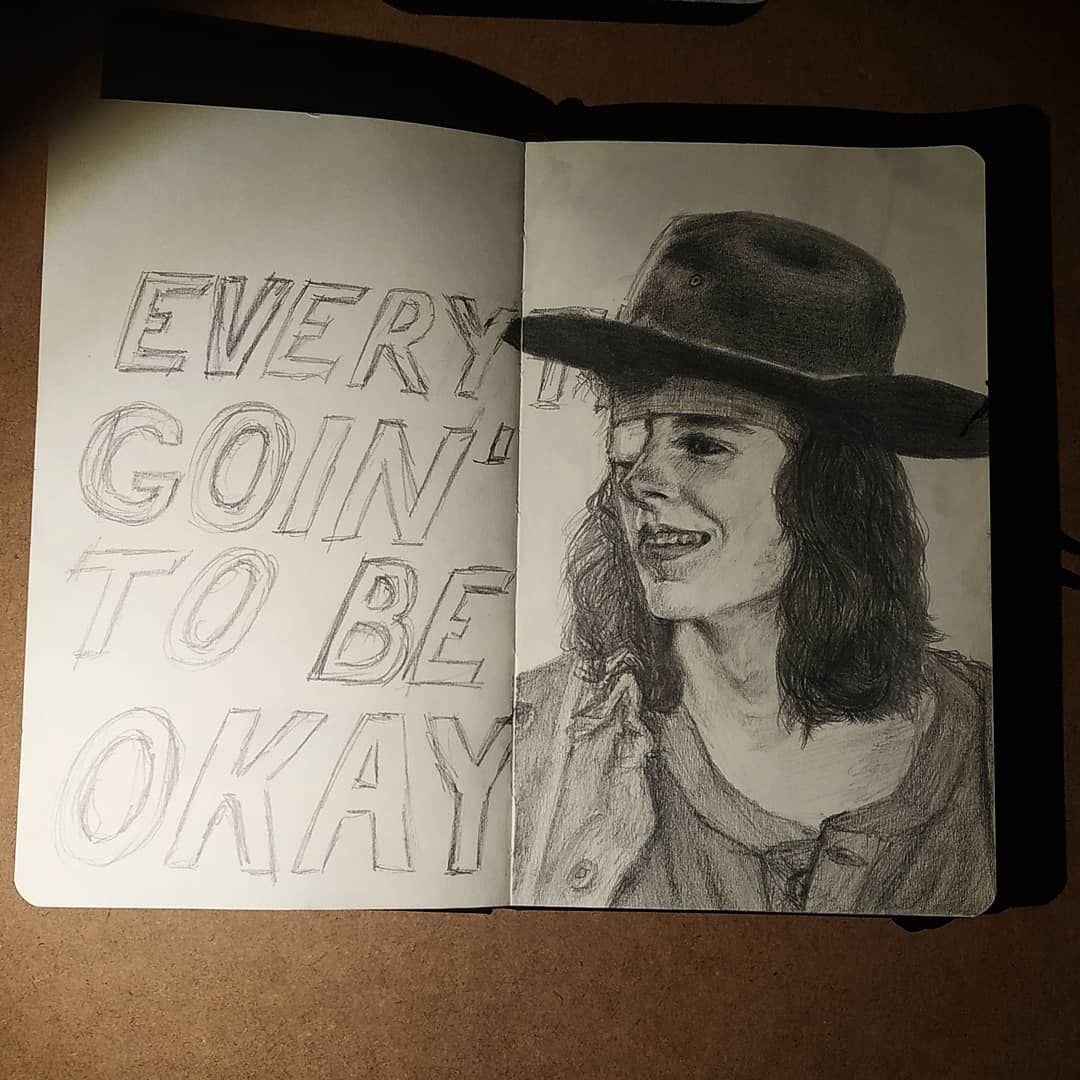 EVERYT
GOIN'
TO BE
OKAY